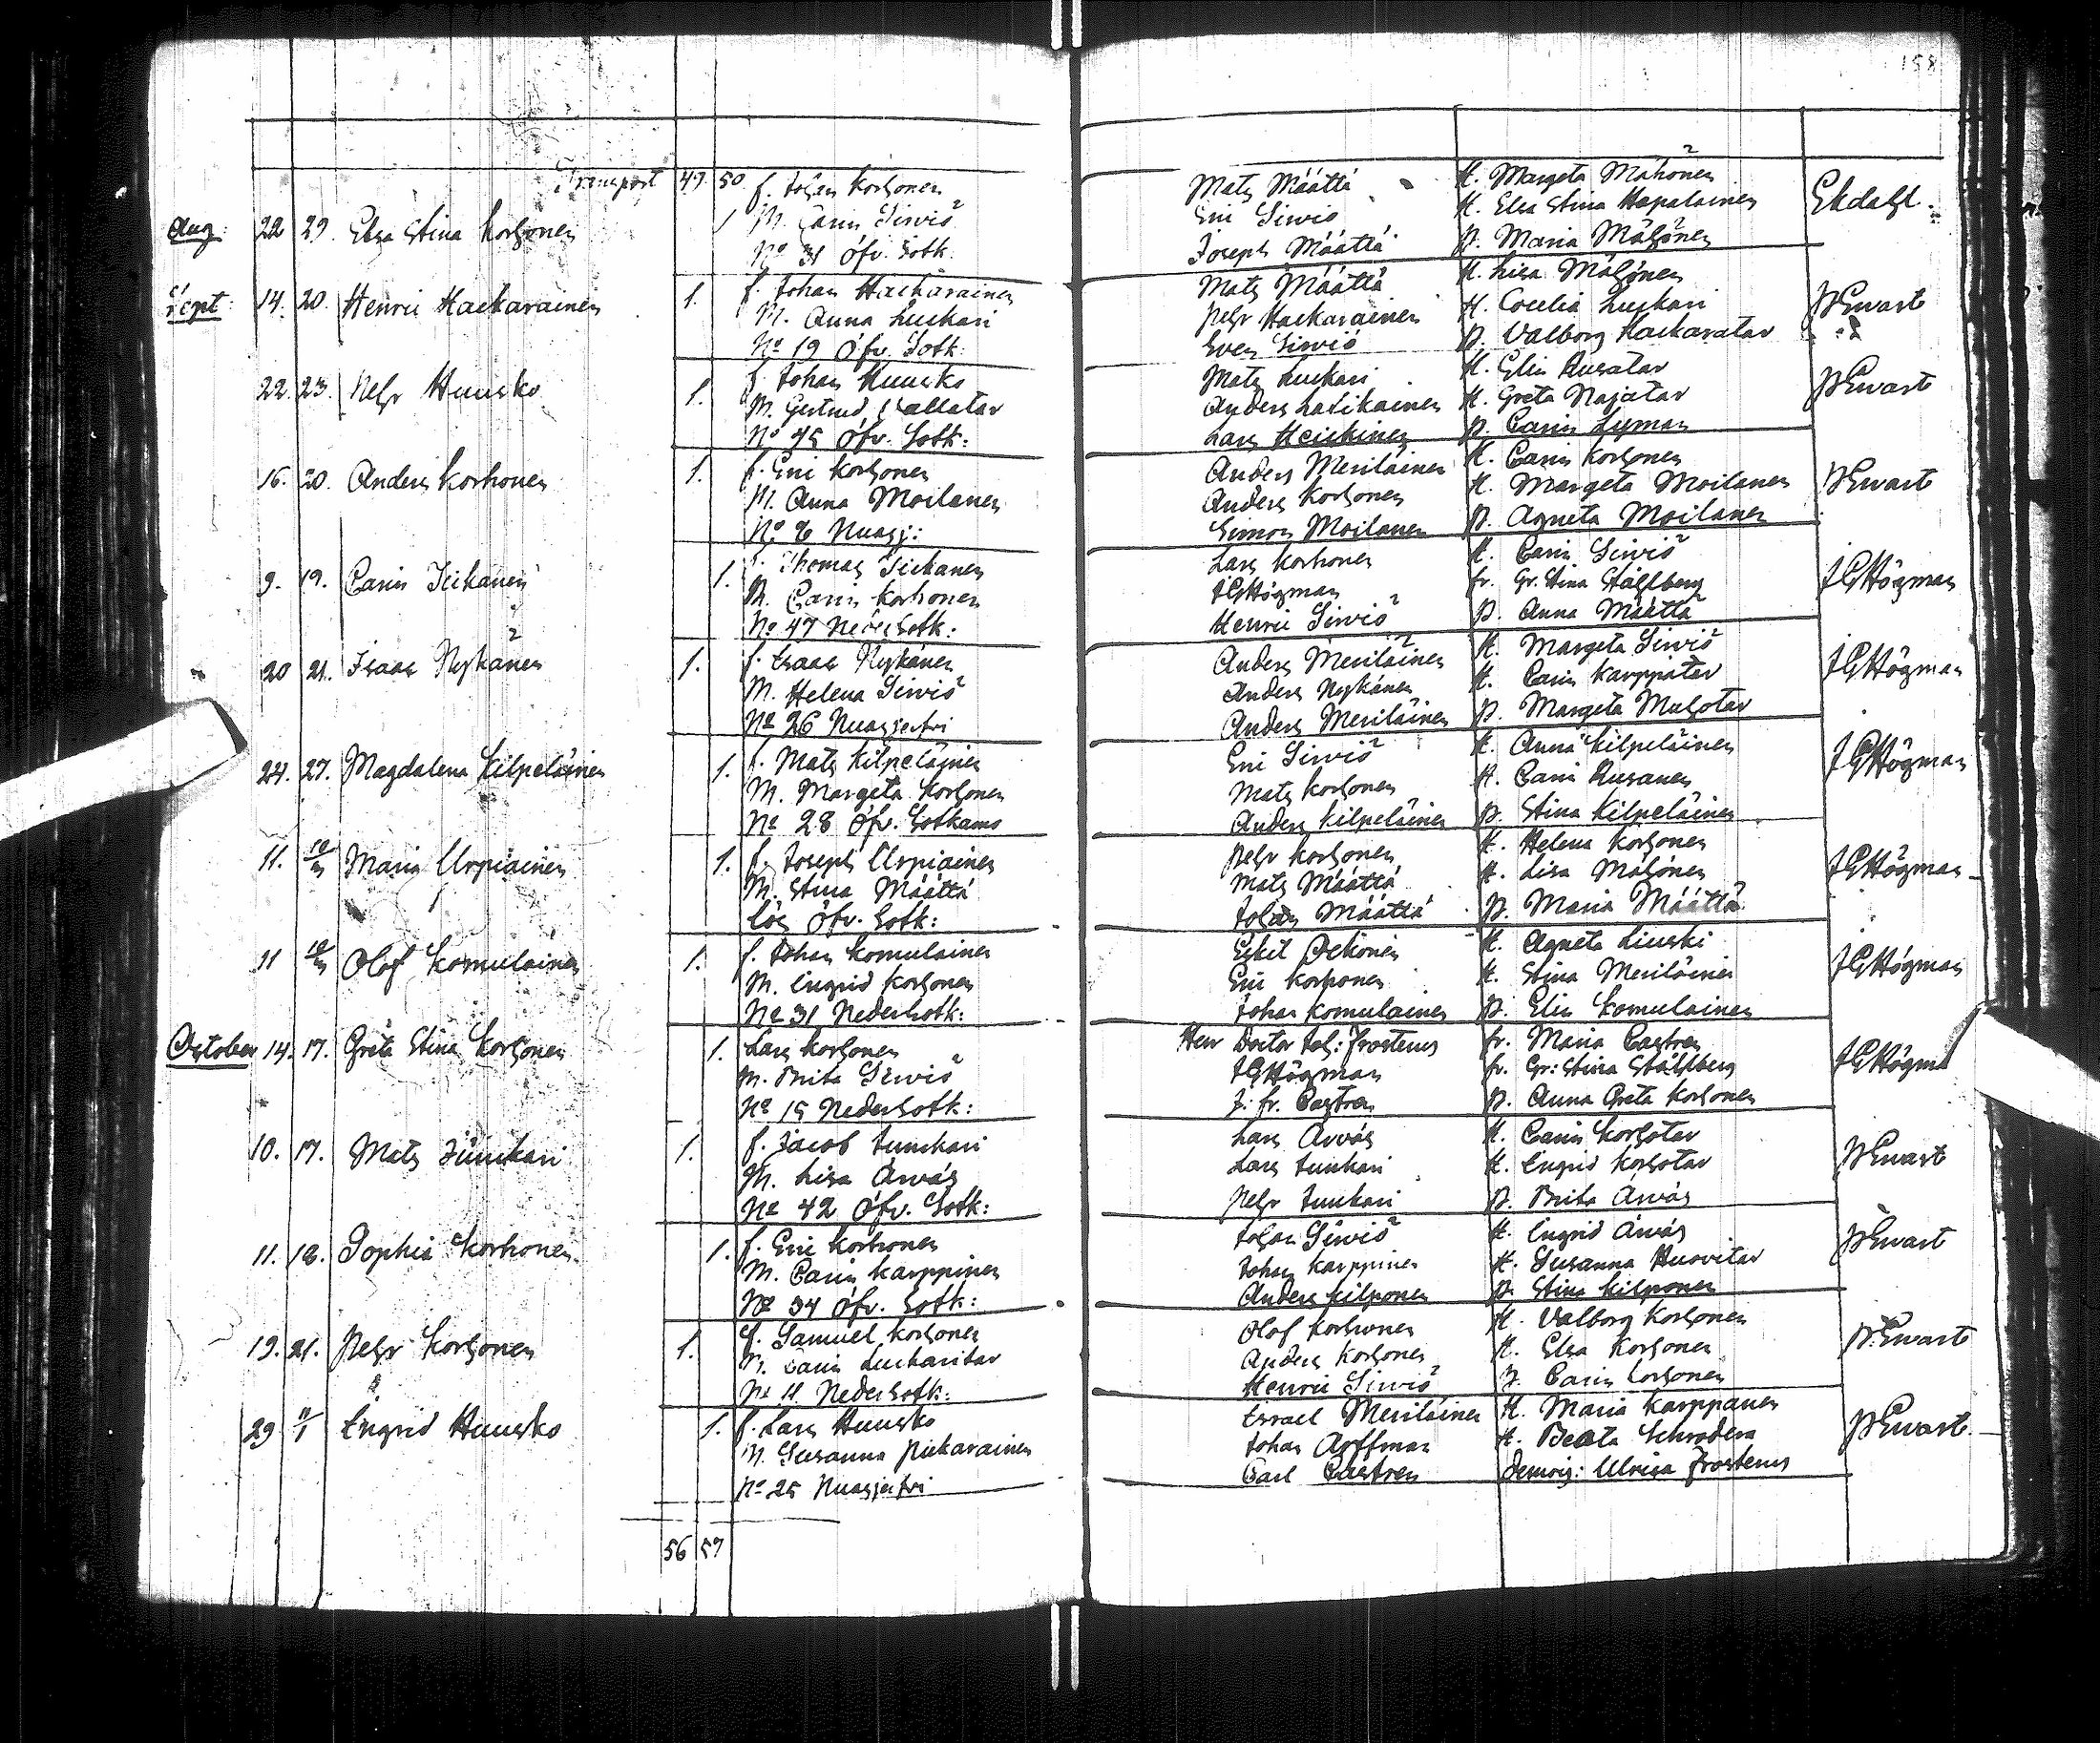 158
Transport 47. 50. f. Johan Korhonen Mats Määttä H. Margeta Mähönen Ekdahl.
Aug: 22 29. Elsa Stina Korhonen 1 M. Carin Sirviö Eric Sirviö H. Elsa Stina Hapalainen
No 31 Öfv. Sotk. Joseph Määttä P. Maria Mähönen
Sept: 14. 20. Henric Hackarainen 1. f. Johan Hackarainen Mats Määttä H. Lisa Mähönen P Ewart
M. Anna Luckari Pehr Hackarainen H. Cecelia Luckari
No 19 Öfv. Sotk: Sven Sirviö P. Valborg Hackaratar
22. 23. Pehr Huusko 1. f. Johan Huusko Mats Luckari H. Elin Rusatar P Ewart
M. Gertrud Anders Latikainen H. Greta Najatar
No 45 Öfv. Sotk: Lars Heickinen P. Carin Lyman
16. 20. Anders Korhonen 1. f. Eric Korhonen Anders Meriläinen H. Carin Korhonen P Ewart
M. Anna Moilanen Anders Korhonen H. Margeta Moilanen
No 6 Nuasj: Simon Moilanen P. Agneta Moilanen
9. 19. Carin Tickanen 1. f. Thomas Tickanen Lars Korhonen H. Carin Sirviö J G Högman
M. Carin Korhonen J G Högman fr. Gr. Stina Ståhlberg
No 47 Neder Sotk: Henric Sirviö P. Anna Määttä
20 21. Isaac Nykänen 1. f. Isaac Nykänen Anders Meriläinen H. Margeta Sirviö J G Högman
M. Helena Sirviö Anders Nykänen H. Carin Karppatar
No 26 Nuasjerfvi Anders Meriläinen P. Margeta Muhotar
24. 27. Magdalena Kilpeläinen 1. f. Mats Kilpeläinen Eric Sirviö H. Anna Kilpeläinen J G Högman
M. Margeta Korhonen Mats Korhonen H. Carin Rusanen
No 28 Öfv. Sotkamo Anders Kilpeläinen P. Stina Kilpeläinen
11. Maria Urpiainen 1. f. Joseph Urpiainen Pehr Korhonen H. Helena Korhonen J G Högman
M. Stina Määttä Mats Määttä H. Lisa Mähönen
Lös Öfv. Sotk: Johan Määttä P. Maria Määttä
11 Olof Komulainen 1. f. Johan Komulainen Eskil Pekonen H. Agneta Liuski J G Högman
M. Ingrid Korhonen Eric Korhonen H. Stina Meriläinen
No 31 Neder Sotk: Johan Komulainen P. Elin Komulainen
October 14. 17. Greta Stina Korhonen 1. Lars Korhonen Herr Doctor Joh: Frosterus fr. Maria Castren J G Högma
M. Brita Sirviö J G Högman fr. Gr: Stina Ståhlberg
No 15 Neder Sotk: Z. fr. Castren P. Anna Greta Korhonen
10. 17. Mats Juntkari 1. f. Jacob Juntkari Lars Arvås H. Carin Korhotar P Ewart
M. Lisa Arvås Lars Juntkari H. Ingrid Korhotar
No 42 Öfv. Sotk: Pehr Juntkari P. Brita Arvås
11. 18. Sophia Korhonen 1. f. Eric Korhonen Johan Sirviö H. Ingrid Arvås P Ewart
M. Carin Karppinen Johan Karppinen H. Susanna Huovitar
No 34 Öfv. Sotk: Anders Kilponen P. Stina Kilponen
19. 21. Pehr Korhonen 1. f. Samuel Korhonen Olof Korhonen H. Valborg Korhonen P. Ewart
M. Carin Luckaritar Anders Korhonen H. Elsa Korhonen
No 11 Neder Sotk: Henric Sirviö P. Carin Korhonen
29 Ingrid Huusko 1. f. Lars Huusko Israel Meriläinen H. Maria Karppanen P Ewart
M. Susanna Pickarainen Johan Appfman H. Beata Schrodera
No 25 Nuasjerfvi Carl Castren Demois: Ulrica Frosterus
56 57